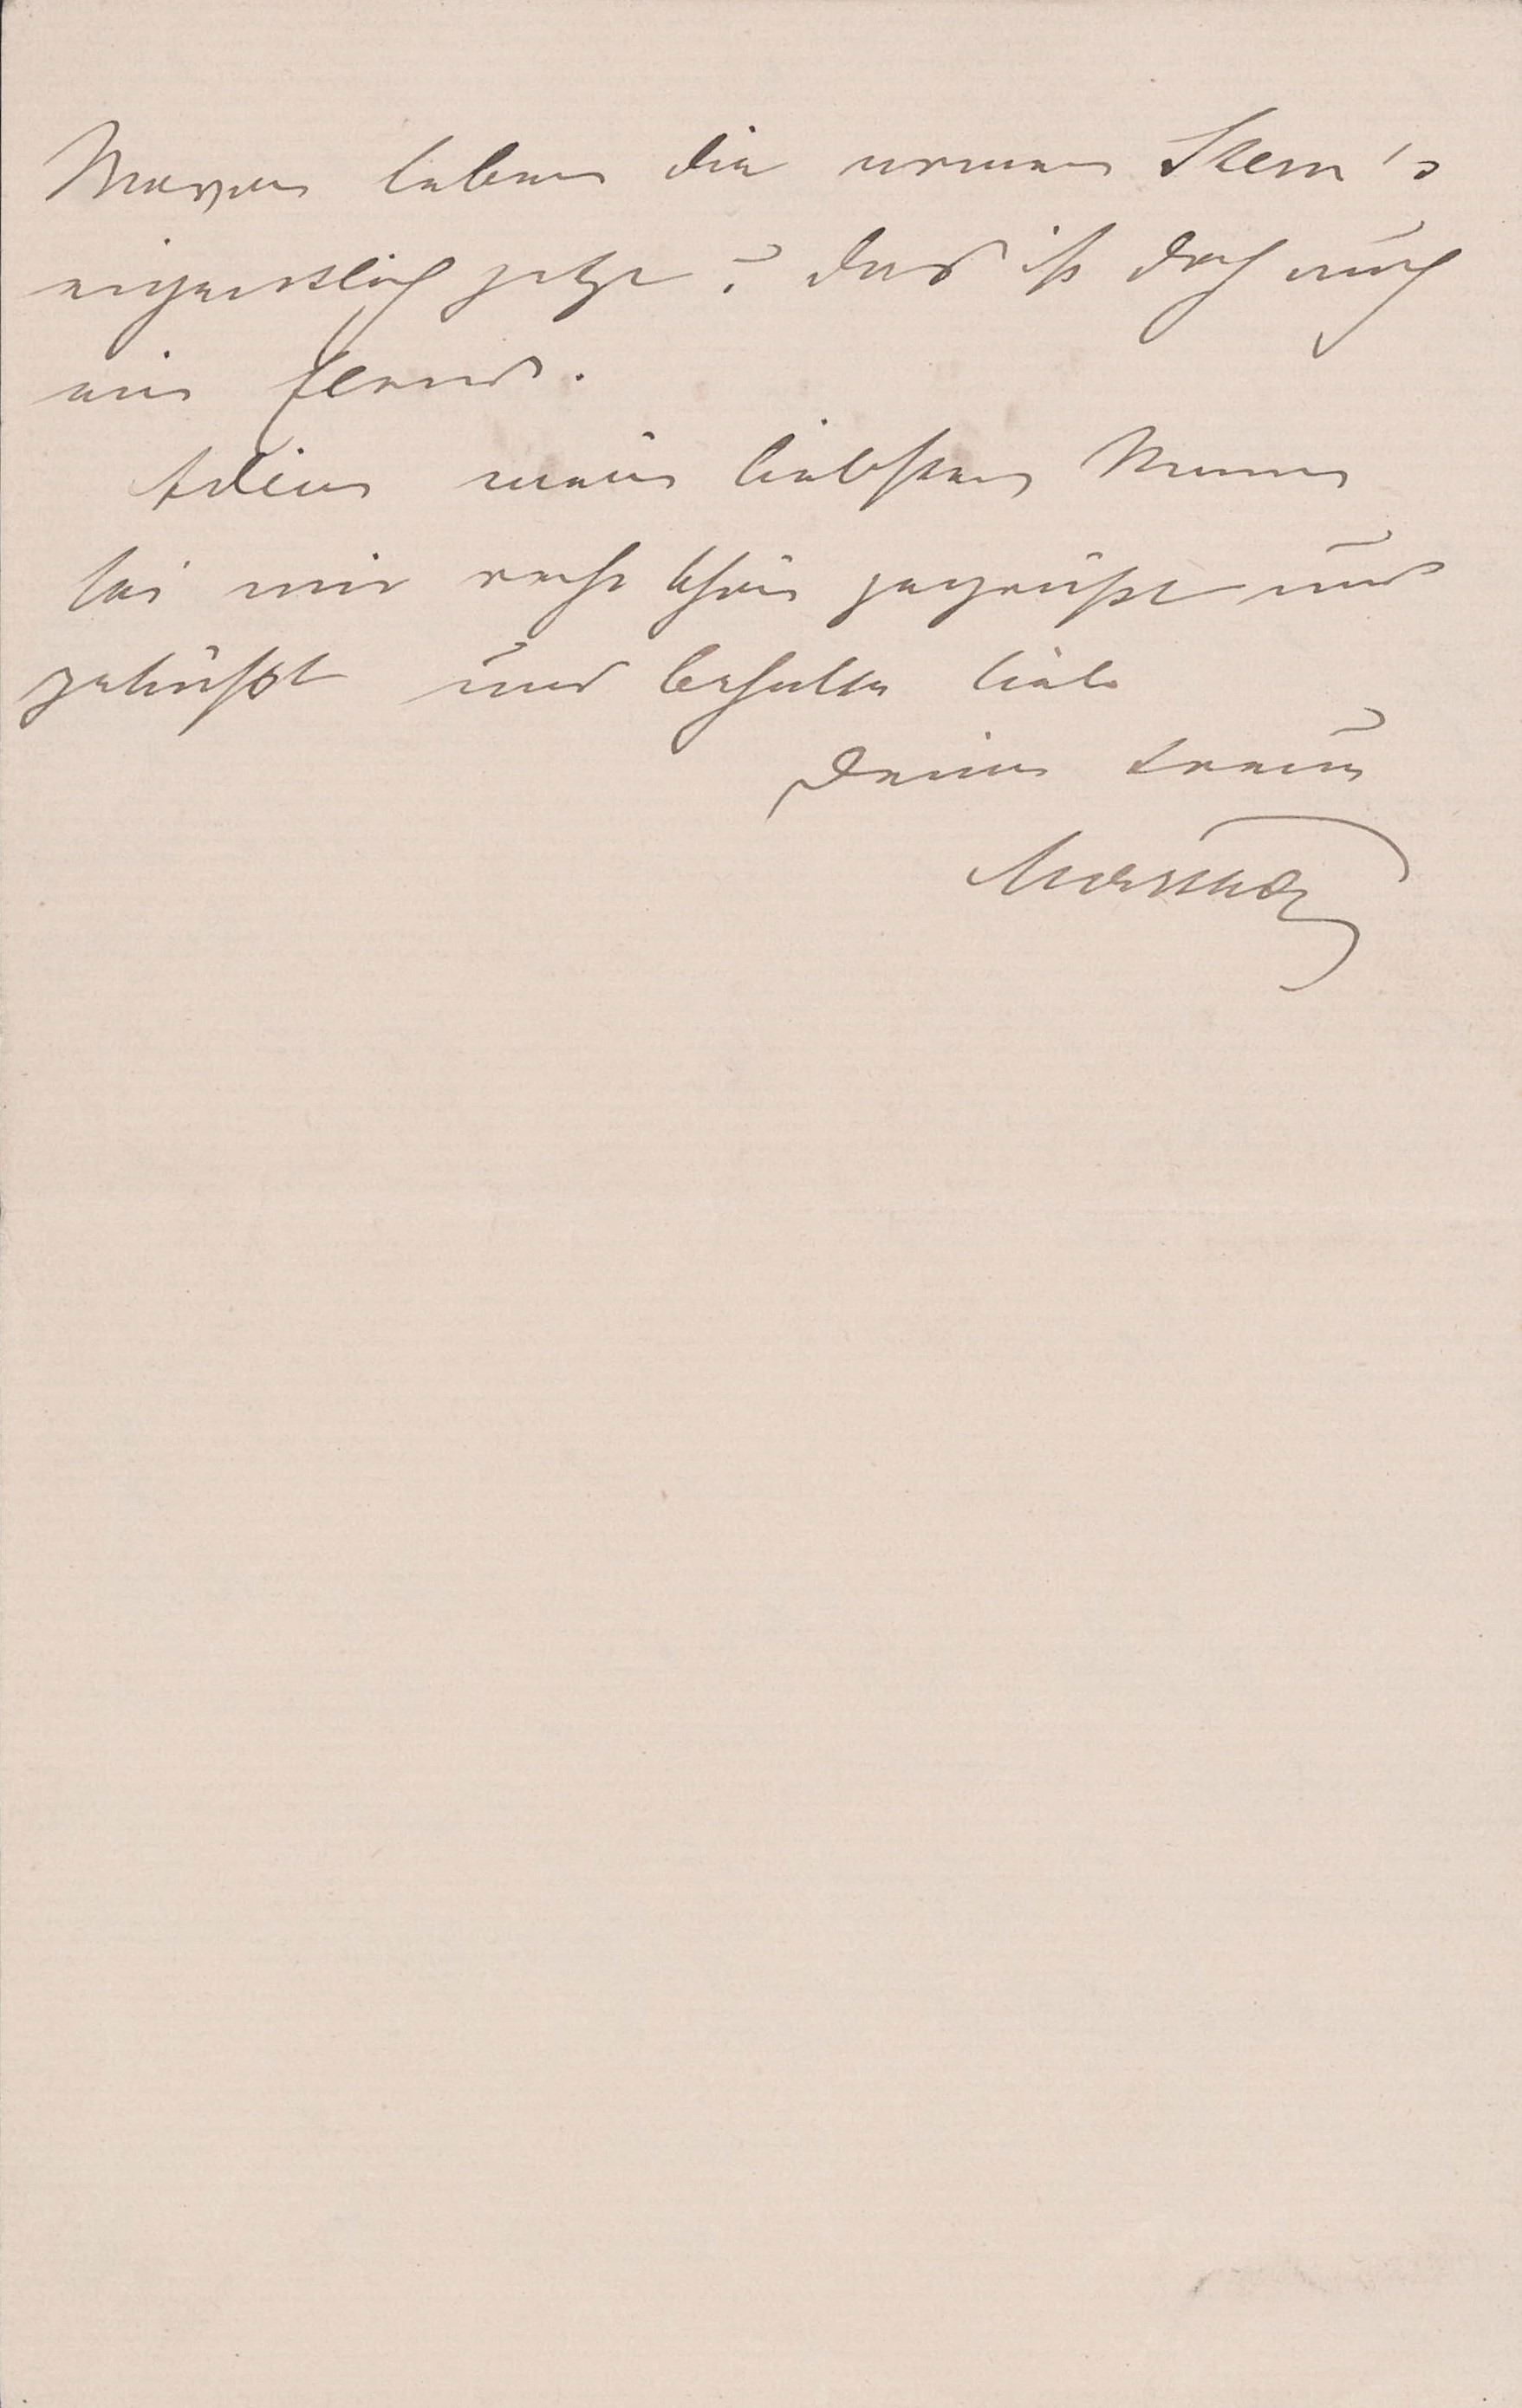 Wovon leben die armen Stern's
eigentlich jetzt? das ist doch auch
ein Elend.
Adieu mein liebster Mann
sei mir recht schön gegrüßt und
geküßt und behalte lieb
Deine treue
Martha